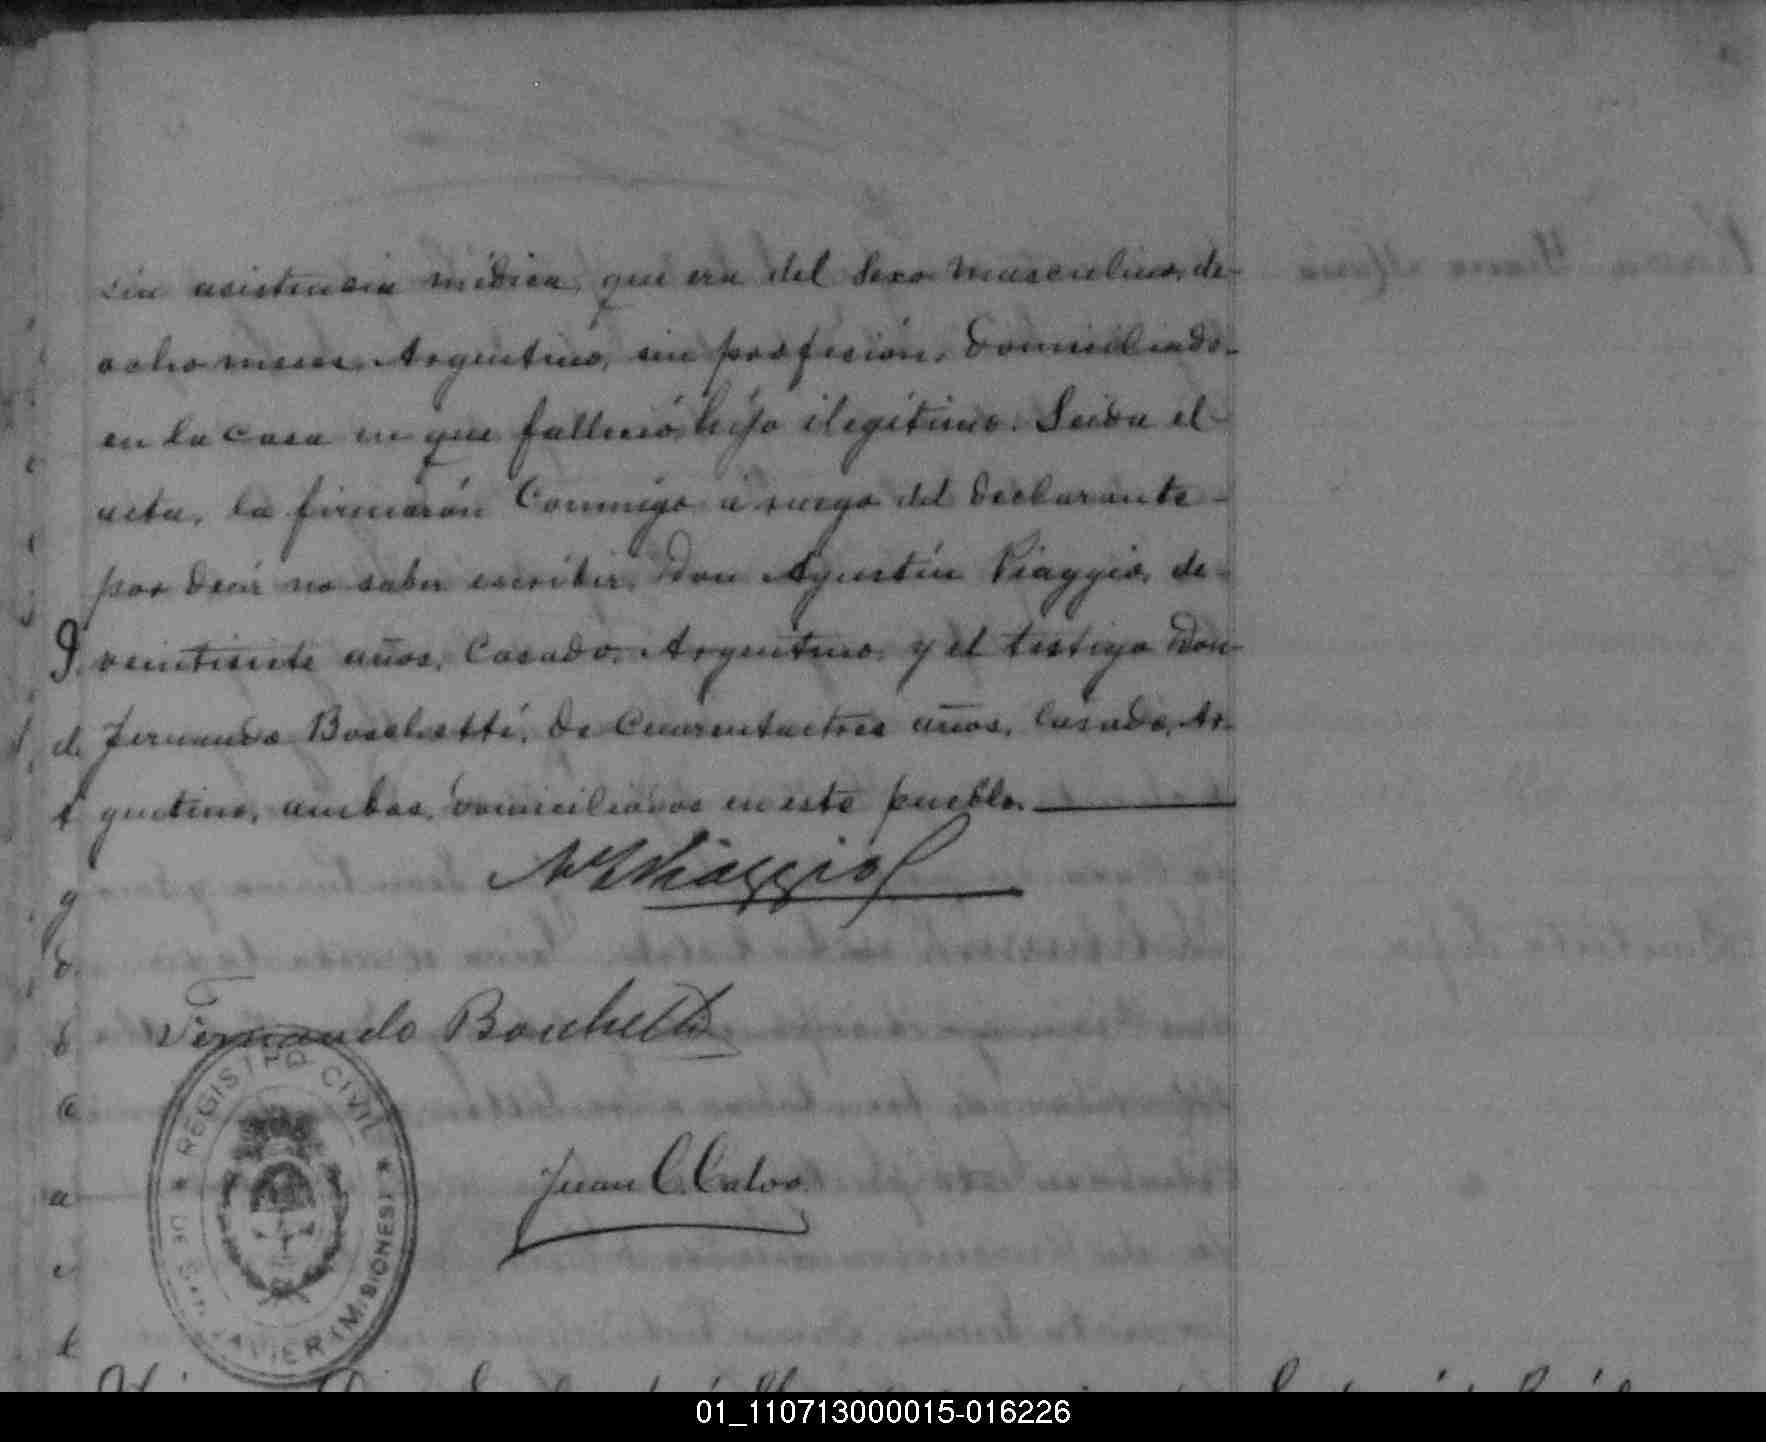 sin asistencia médica, que era del sexo masculino, de-
ocho meses, Argentino, sin profesión, domiciliado-
en la casa en que falleció, hijo ilegítimo. Leida el-
acta, la firmarón Conmigo á ruego del declarante-
por decir no saber escribir, Don Agustín Viaggio, de-
veintisiete años, Casado, Argentino, y el testigo Don
Fernando Boschetti, de Cuarentaitres años, Casado, Ar-
gentino, ambos, domiciliados en este pueblo.
Viaggio
Fernando Boschetti
REGISTRO CIVIL
DE SAN JAVIER (MISIONES)
Juan C. Calvo
01_110713000015-016226